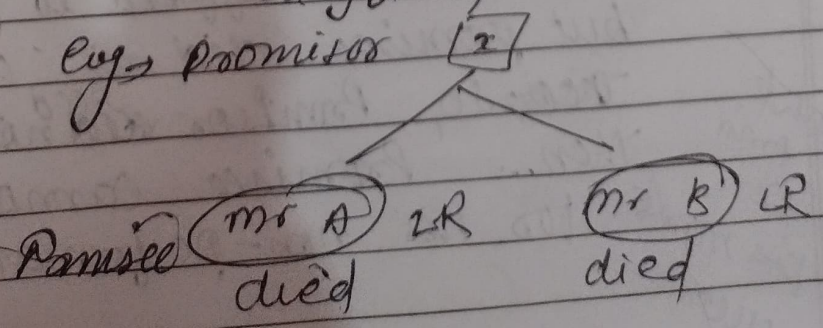 eg → Promisor x
Pomisee mr A LR mr B LR
died died